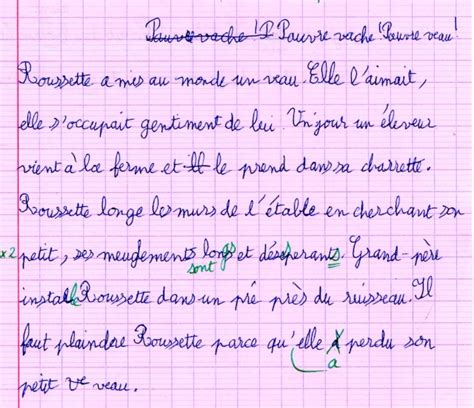 Pauvre vache ! P Pauvre vache ! Pauvre veau !
Roussette a mis au monde un veau. Elle l'aimait,
elle s'occupait gentiment de lui. Un jour un éleveur
vient à la ferme et le prend dans sa charrette.
Roussette longe les murs de l'étable en cherchant son
x2 petit, ses meuglements sont longs et désesperants. Grand-père
install Roussette dans un pré près du ruisseau. Il
faut plaindre Roussette parce qu'elle a perdu son
petit ve veau.